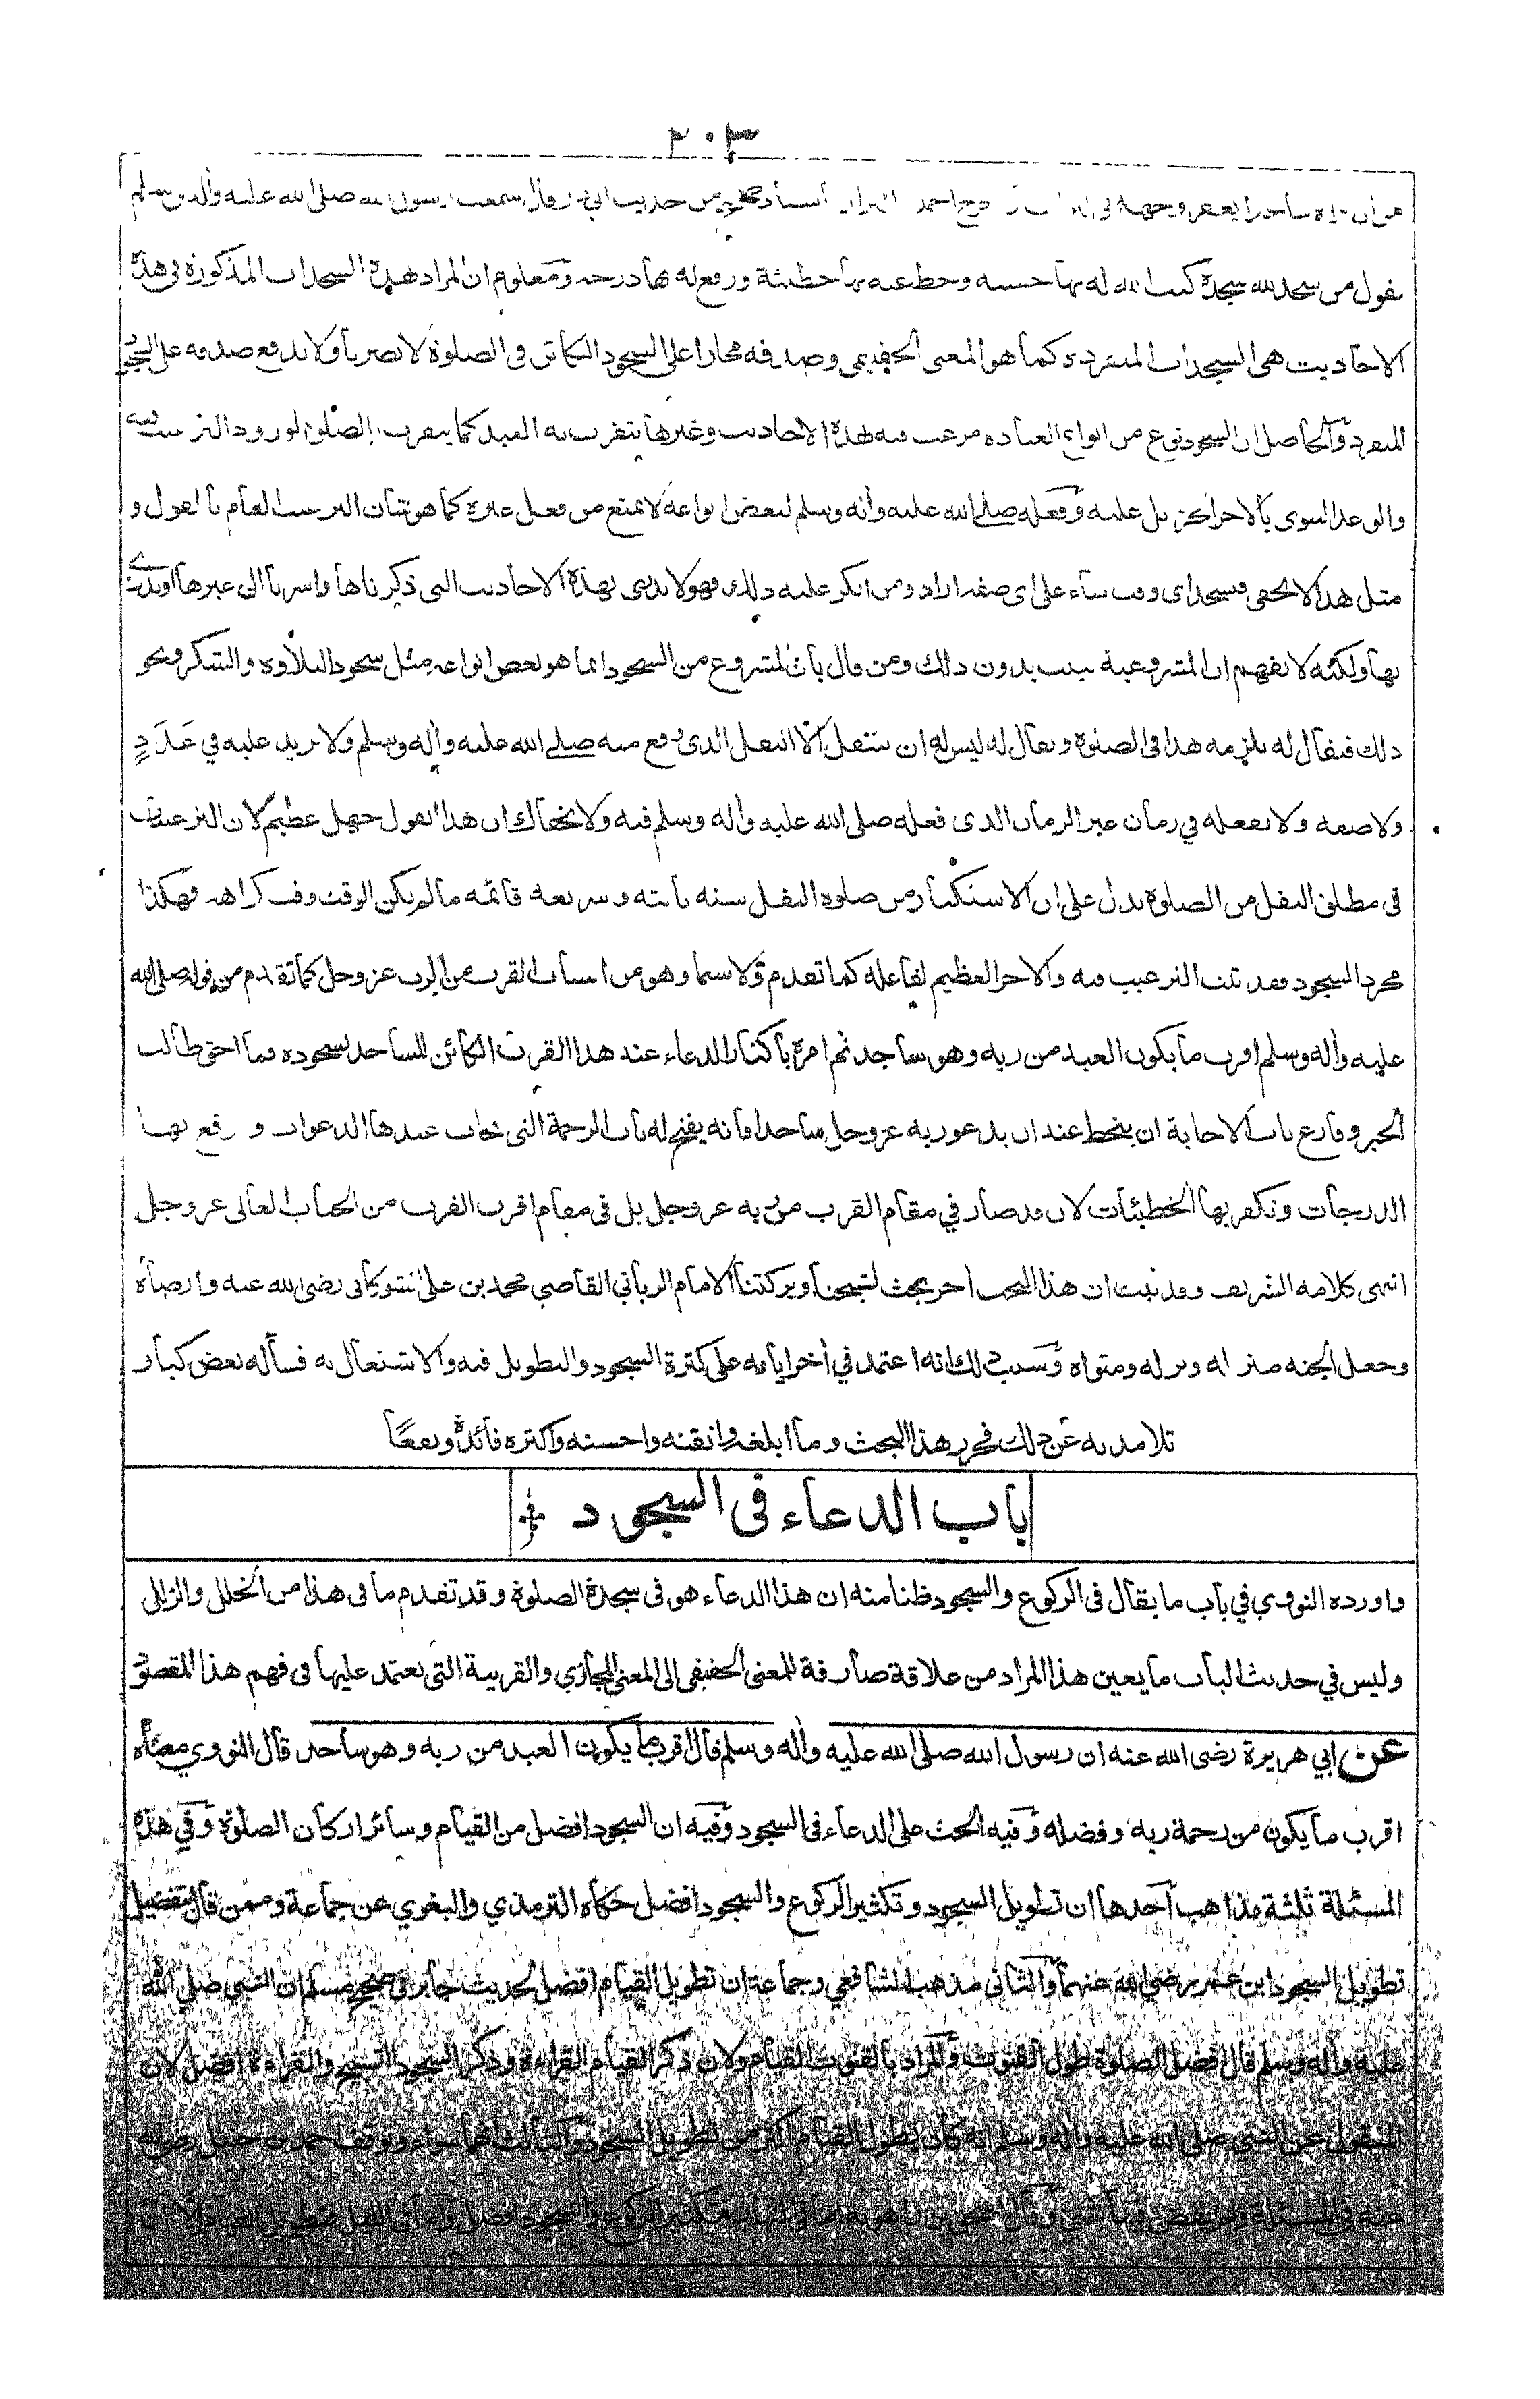 ٢٠٣
من ان يراه ساجدا يعفر وجهه في التراب واخرج احمد والبزار باسناد صحيح من حديث ابي ذر قال سمعت رسول الله صلى الله عليه وآله وسلم
يقول من سجد لله سجدة كتب الله له بها حسنة وحط عنه بها خطيئة ورفع له بها درجة ومعلوم ان المراد بهذه السجدات المذكورة في هذه
الاحاديث هي السجدات المنفردة كما هو المعنى الحقيقي وصدقه مجازا على السجود الكائن في الصلوة لا يضرنا ولا يدفع صدقه على السجود
المنفرد والحاصل ان السجود نوع من انواع العبادة مرغب فيه بهذه الاحاديث وغيرها يتقرب به العبد كما يتقرب بالصلوة لورود الترغيب فيه
والوعد النبوي بالاجر الجزيل عليه وفعله صلى الله عليه وآله وسلم لبعض انواعه لا يمنع من فعل غيره كما هو شان الترغيب العام بالقول و
مثل هذا لا يخفى فسجد اي وقت شاء على اي صفة اراد ومن انكر عليه ذلك فهو لا يدري بهذه الاحاديث التي ذكرناها واشرنا الى غيرها او يدري
بها ولكنه لا يفهم ان المشروعية تثبت بدون ذلك ومن قال بان المشروع من السجود انما هو بعض انواعه مثل سجود التلاوة والشكر ونحو
ذلك فيقال له يلزمه هذا في الصلوة ويقال له ليس له ان يتنفل الا النفل الذي وقع منه صلى الله عليه وآله وسلم ولا يزيد عليه في عَدَدٍ
ولا صفة ولا يفعله في زمان غير الزمان الذي فعله صلى الله عليه وآله وسلم فيه ولا يخفاك ان هذا القول جهل عظيم لان الترغيبات
في مطلق النفل من الصلوة يدل على ان الاستكثار من صلوة النفل سنة ثابتة وشريعة قائمة ما لم يكن الوقت وقت كراهة وهكذا
مجرد السجود فقد ثبت الترغيب فيه والاجر العظيم لفاعله كما تقدم ولا سيما وهو من اسباب القرب من الرب عز وجل كما تقدم من قوله صلى الله
عليه وآله وسلم اقرب ما يكون العبد من ربه وهو ساجد ثم امره باكثار الدعاء عند هذا القرب الكائن للساجد بسجوده فما احق طالب
الخير وقارع باب الاجابة ان ينحط عند ان يدعو ربه عز وجل ساجدا فانه يفتح له باب الرحمة التي تجاب عندها الدعوات و رفع بها
الدرجات وتكفر بها الخطيئات لانه قد صار في مقام القرب من ربه عز وجل بل في مقام اقرب القرب من الجناب العالى عز وجل
انتهى كلامه الشريف وقد ثبت ان هذا البحث آخر بحث لشيخنا وبركتنا الامام الرباني القاضي محمد بن علي الشوكاني رضي الله عنه وارضاه
وجعل الجنة منزله ونزله ومثواه وسبب ذلك انه اعتمد في آخر ايامه على كثرة السجود والتطويل فيه والاشتغال به فسأله بعض كبار
تلامذته عن ذلك فحرر هذا البحث وما ابلغه واتقنه واحسنه واكثره فائدة ونفعًا
باب الدعاء فى السجود
واورده النووي في باب ما يقال في الركوع والسجود ظنا منه ان هذا الدعاء هو في سجدة الصلوة وقد تقدم ما في هذا من الخلل والزلل
وليس في حديث الباب ما يعين هذا المراد من علاقة صارفة للمعنى الحقيقي الى المعنى المجازي والقرينة التي يعتمد عليها في فهم هذا المقصود
عن ابي هريرة رضي الله عنه ان رسول الله صلى الله عليه وآله وسلم قال اقرب ما يكون العبد من ربه وهو ساجد قال النووي معناه
اقرب ما يكون من رحمة ربه وفضله وفيه الحث على الدعاء في السجود وفيه ان السجود افضل من القيام وسائر اركان الصلوة وفي هذه
المسئلة ثلثة مذاهب احدها ان تطويل السجود وتكثير الركوع والسجود افضل حكاه الترمذي والبغوي عن جماعة وممن قال بتفضيل
تطويل السجود ابن عمر رضي الله عنهما والثاني مذهب الشافعي وجماعة ان تطويل القيام افضل لحديث جابر في صحيح مسلم ان النبي صلى الله
عليه وآله وسلم قال افضل الصلوة طول القنوت والمراد بالقنوت القيام ولان ذكر القيام القراءة وذكر السجود التسبيح والقراءة افضل لان
المنقول عن النبي صلى الله عليه وآله وسلم انه كان يطول القيام اكثر من تطويل السجود والثالث انهما سواء وتوقف احمد بن حنبل رضي الله
عنه في المسئلة ولم يقض فيها بشيء وقال اسحق بن راهويه اما في النهار فتكثير الركوع والسجود افضل واما في الليل فتطويل القيام الا ان